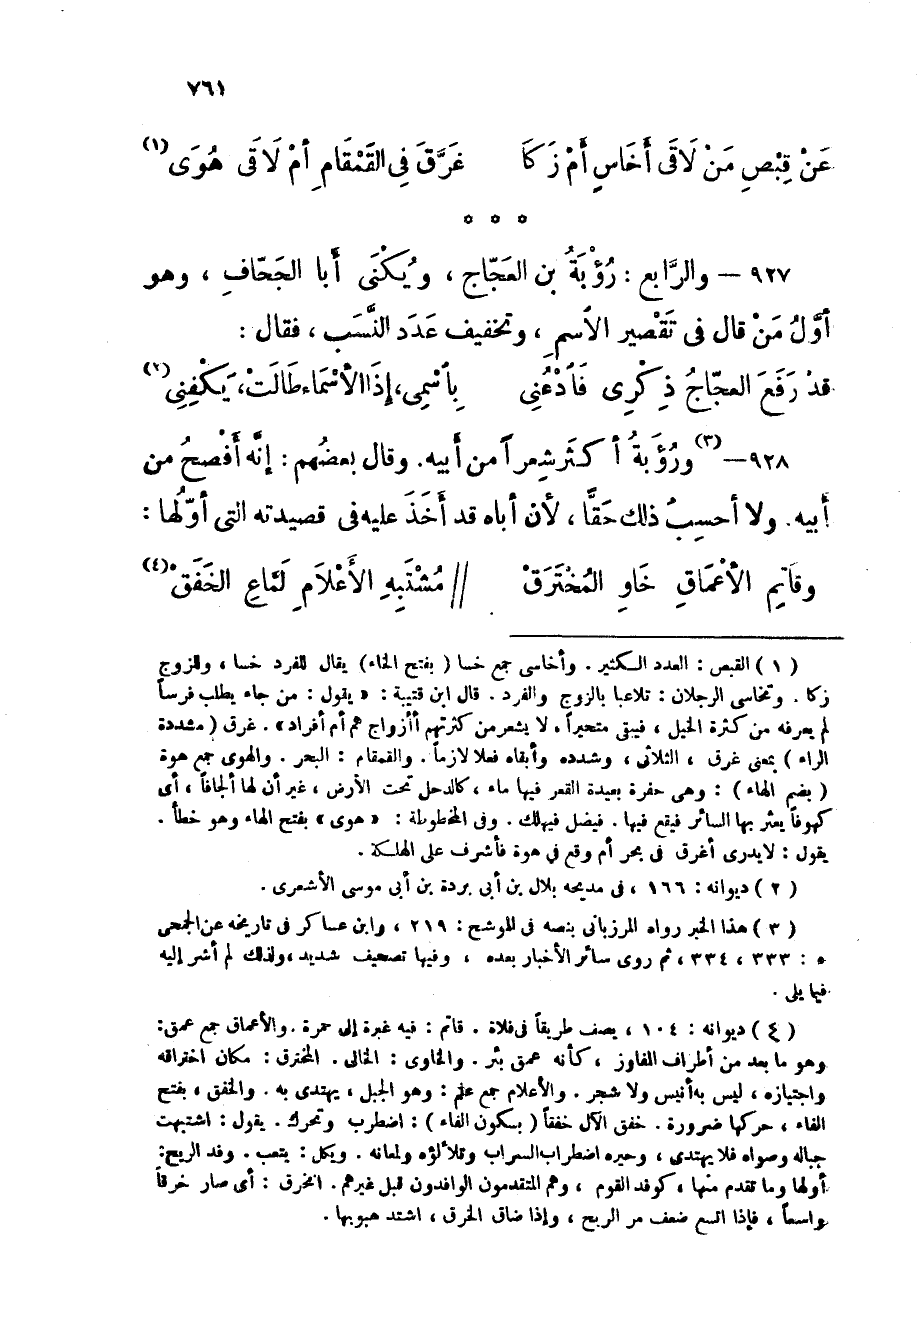 ٧٦١
عَنْ قِبْصِ مَنْ لَاقَى أَخَاسٍ أَمْ زَكَا غَرَّقَ فِي القَمْقَامِ أَمْ لَاقَى هُوَى(١)
* * *
٩٢٧ – والرَّابع : رُؤْبَةُ بن العَجّاج ، ويُكْنَى أَبا الجَحّاف ، وهو
أوَّلُ مَنْ قال فى تَقْصير الاسمِ ، وتخفيف عَدَد النَّسَب ، فقال :
قدْ رَفَعَ العجّاجُ ذِكْرِى فَادْعُنِى بِاسْمِى، إِذَا الأَسْمَاء طَالَتْ، يَكْفِنِى(٢)
٩٢٨ –(٣) ورُؤَبةُ أكثَر شعراً من أَبيه. وقال بعضُهم : إنَّه أَفْصحُ من
أبيه. ولا أحسِبُ ذلك حَقًّا ، لأن أباه قد أَخَذَ عليه فى قصيدته التى أوّلُها :
وقَاتِمِ الأَعْمَاقِ خَاوِ المُخْتَرَقْ // مُشْتَبِهِ الأَعْلَامِ لَمّاعِ الخَفَقْ(٤)
(١) القبص : العدد الكثير . وأخاسى جمع خسا ( بفتح الخاء) يقال للفرد خسا ، وللزوج
زكا . وتخاسى الرجلان : تلاعبا بالزوج والفرد . قال ابن قتيبة : « يقول : من جاء يطلب فرساً
لم يعرفه من كثرة الخيل ، فيبقى متحيراً ، لا يشعر من كثرتهم أأزواج هم أم أفراد» . غرق ( مشددة
الراء ) بمعنى غرق ، الثلاثى ، وشدده وأبقاه فعلا لازماً . والقمقام : البحر . والهوى جمع هوة
( بضم الهاء ) : وهى حفرة بعيدة القعر فيها ماء ، كالدحل تحت الأرض ، غير أن لها ألجافاً ، أى
كهوفاً يعثر بها السائر فيقع فيها . فيضل فيهلك . وفى المخطوطة : « هوى » بفتح الهاء وهو خطأ .
يقول : لايدرى أغرق فى بحر أم وقع فى هوة فأشرف على الهلكة .
( ٢ ) ديوانه : ١٦٦ ، فى مديحه بلال بن أبى بردة بن أبى موسى الأشعرى .
( ٣ ) هذا الخبر رواه المرزبانى بنصه فى الموشح : ٢١٩ ، وابن عساكر فى تاريخه عن الجمحى
٥ : ٣٣٣ ، ٣٣٤ ، ثم روى سائر الأخبار بعده ، وفيها تصحيف شديد ، ولذلك لم أشر إليه
فيما يلى .
( ٤ ) ديوانه : ١٠٤ ، يصف طريقاً فى فلاة . قاتم : فيه غبرة إلى حمرة . والأعماق جمع عمق :
وهو ما بعد من أطراف المفاوز ، كأنه عمق بئر . والخاوى : الخالى . المخترق : مكان اختراقه
واجتيازه ، ليس به أنيس ولا شجر . والأعلام جمع علم : وهو الجبل ، يهتدى به . والخفق ، بفتح
الفاء ، حركها ضرورة . خفق الآل خفقاً ( بسكون الفاء ) : اضطرب وتحرك . يقول : اشتبهت
جباله وصواه فلا يهتدى ، وحيره اضطراب السراب وتلألؤه ولمعانه . ويكل : يتعب . وفد الريح :
أولها وما تقدم منها ، كوفد القوم ، وهم المتقدمون الوافدون قبل غيرهم . انخرق : أى صار خرقاً
واسعاً ، فإذا اتسع ضعف مر الريح ، وإذا ضاق الخرق ، اشتد هبوبها .